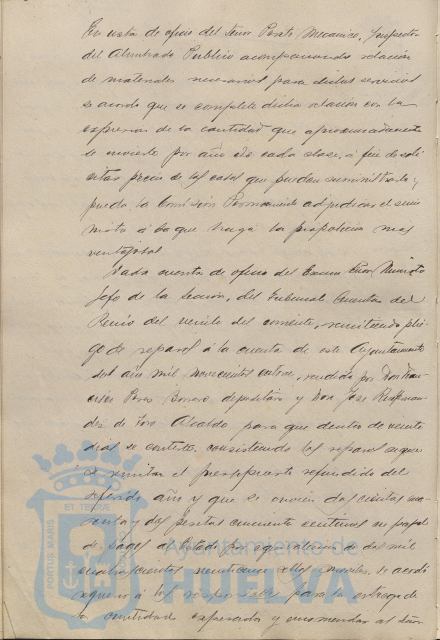 En vista de oficio del Señor Perito Mecanico, Inspector
del Alumbrado Publico acompañando relación
de materiales necesarios para dichos servicios
se acordó que se complete dicha relación con la
expresion de la cantidad que aproximadamente
se invierte por año de cada clase, á fin de soli
citar precio de las casas que puedan suministrarlo y
pueda la Comisión Permanente adjudicar el sumi
nistro á la que haga la proposicion mas
ventajosa.
Dada cuenta de oficio del Excmo Señor Ministro
Jefe de la Sección, del Tribunal Cuentas del
Reino del veinte del corriente, remitiendo plie
go de reparos á la cuenta de este Ayuntamiento
del año mil novecientos catorce, rendida por Don Fran
cisco Perez depositario y Don José
de Alcalde para que dentro de veinte
dias se conteste, consistiendo los reparos en que
se remitan el presupuesto refundido del
referido año y que se envien doscientas
y dos pesetas cincuenta centimos en papel
de pagos al Estado por equivalencia de dos mil
cuatrocientos veinticinco sellos moviles, se acordó
requerir á los responsables para la entrega de
la cantidad expresada y encomendar al Señor
ET TERRÆ
PORTUS MARIS
CUSTODIA
Ayuntamiento de
HUELVA